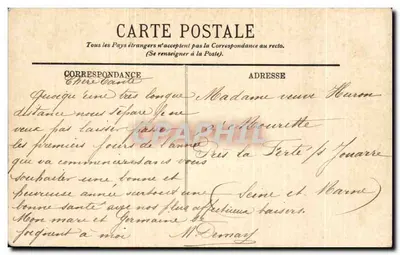 CARTE POSTALE
Tous les Pays étrangers n'acceptent pas la Correspondance au recto.
(Se renseigner à la Poste).
CORRESPONDANCE
ADRESSE
Chère Tante
Quoique une très longue
distance nous sépare je ne
veux pas laisser passer
les premiers jours de l'année
qui va commencer sans vous
souhaiter une bonne et
heureuse année surtout une
bonne santé nos plus affectueux baisers.
Mon mari et Germaine se
joignent à moi
Madame veuve Huron
Près la Ferté s/s Jouarre
(Seine et Marne)
CPAPHIL